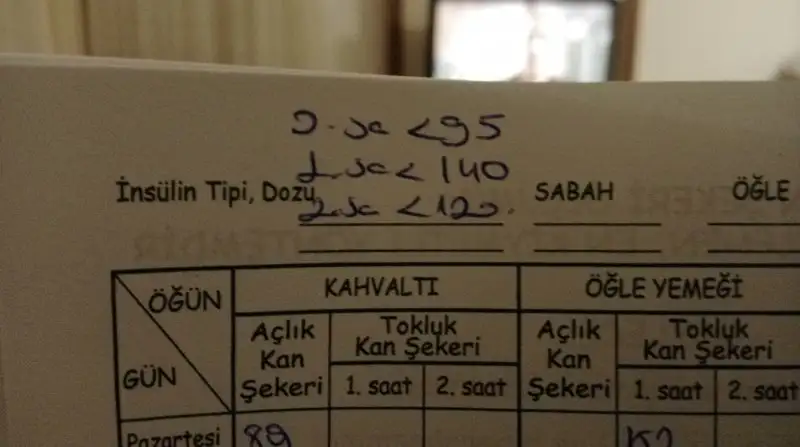 0. sa <95
1. sa < 140
İnsülin Tipi, Dozu SABAH ÖĞLE
2. sa <120.
ÖĞÜN KAHVALTI ÖĞLE YEMEĞİ
Açlık Tokluk Açlık Tokluk
Kan Kan Şekeri Kan Kan Şekeri
GÜN Şekeri 1. saat 2. saat Şekeri 1. saat 2. saat
Pazartesi 89 152